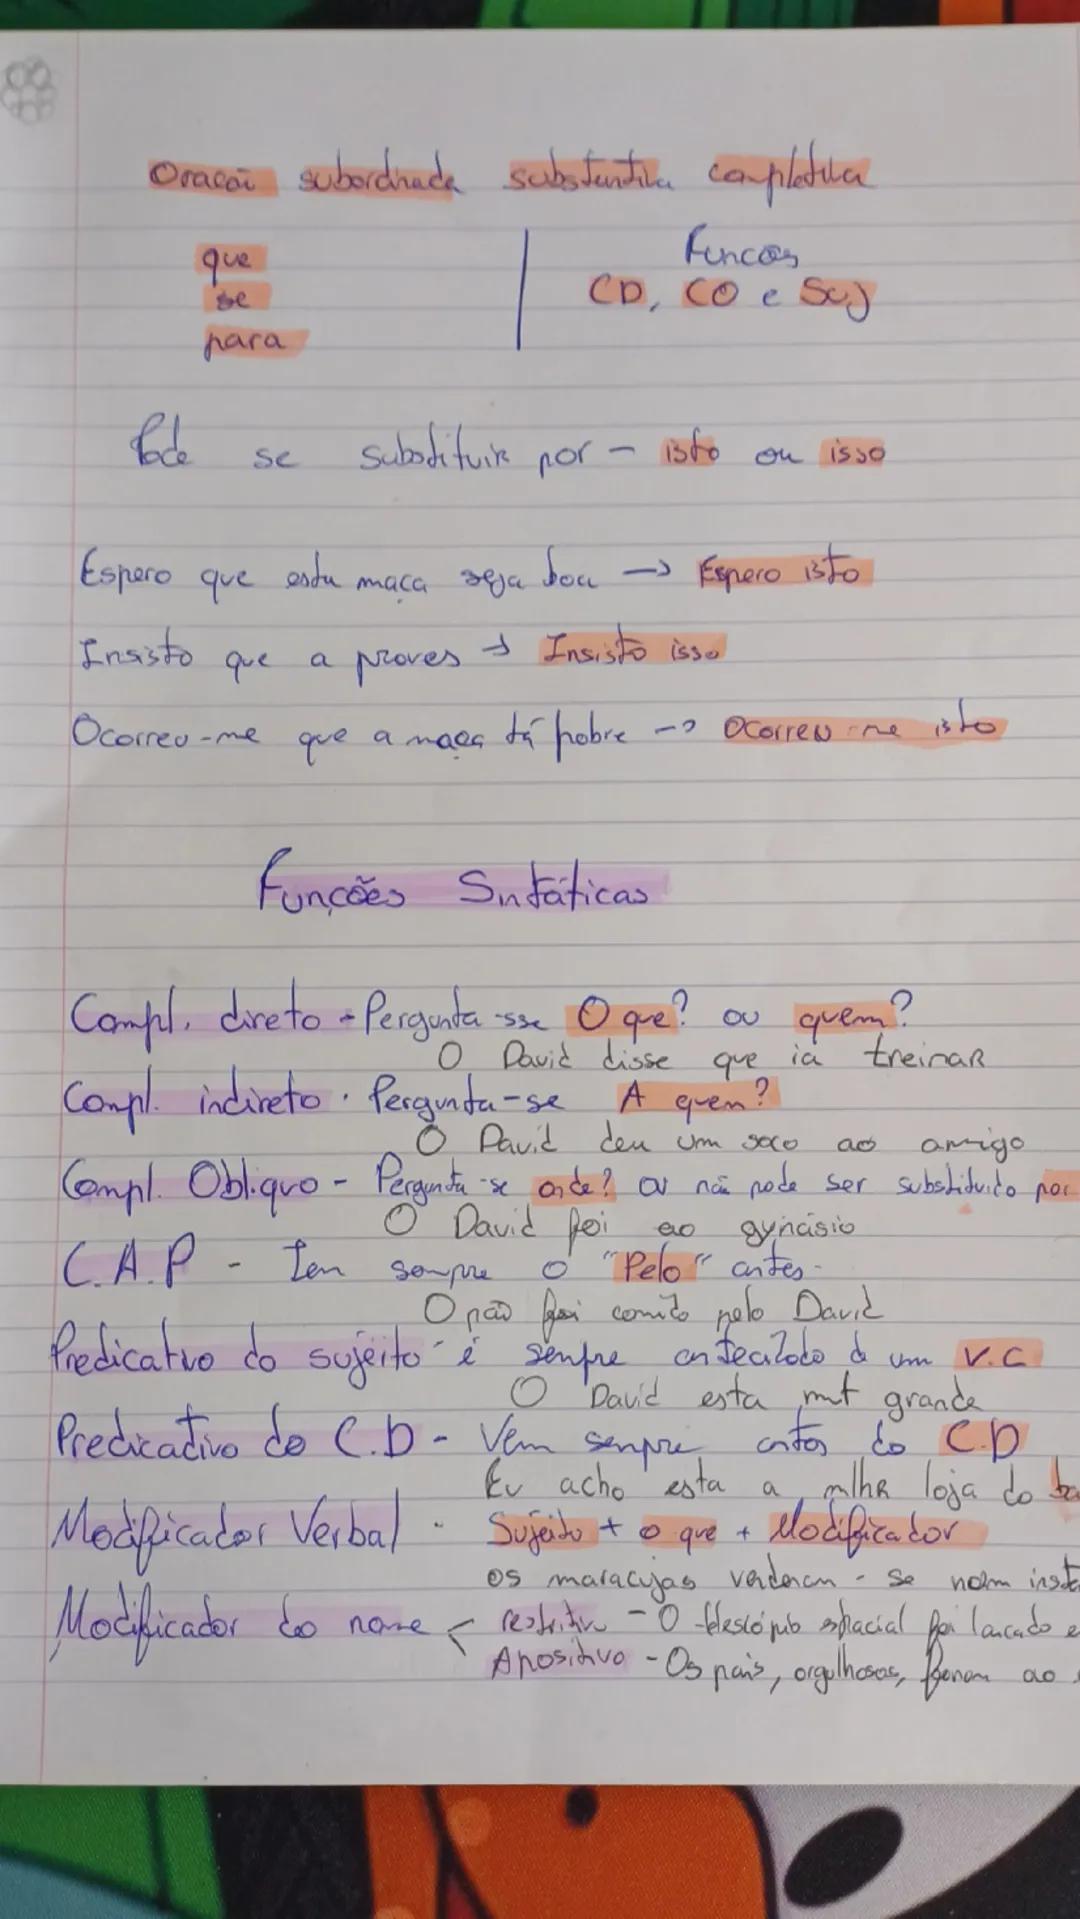 Oracai subordinada substantiva completiva
que
se
para
Funcoẽs
CD, CO e Suj
Pode se substituir por - isto ou isso
Espero que esta maca seja boa -> Espero isto
Insisto que a proves -> Insisto isso
Ocorreu-me que a maca tá pobre -> Ocorreu-me isto
Funcões Sintáticas
Compl. direto - Pergunta-sse O que? ou quem?
O David disse que ia treinar
Compl. indireto. Pergunta-se A quem?
O David deu um soco ao amigo
Compl. Obliquo - Pergunta-se onde? ou não pode ser substituido por
O David foi ao gynásio
C.A.P - Tem sempre o "Pelo" antes-
O pão foi comido pelo David
Predicativo do sujeito - é sempre antecedido de um V.C
O David esta mt grande
Predicativo do C.D - Vem sempre antes do C.D
Eu acho esta a loja do
Modificador Verbal - Sujeito + o que + Modificador
os maracujas venderam - se
Modificador do nome < restritivo - O espacial foi lancado e
Apositivo - Os pais, orgulhosos, foram ao